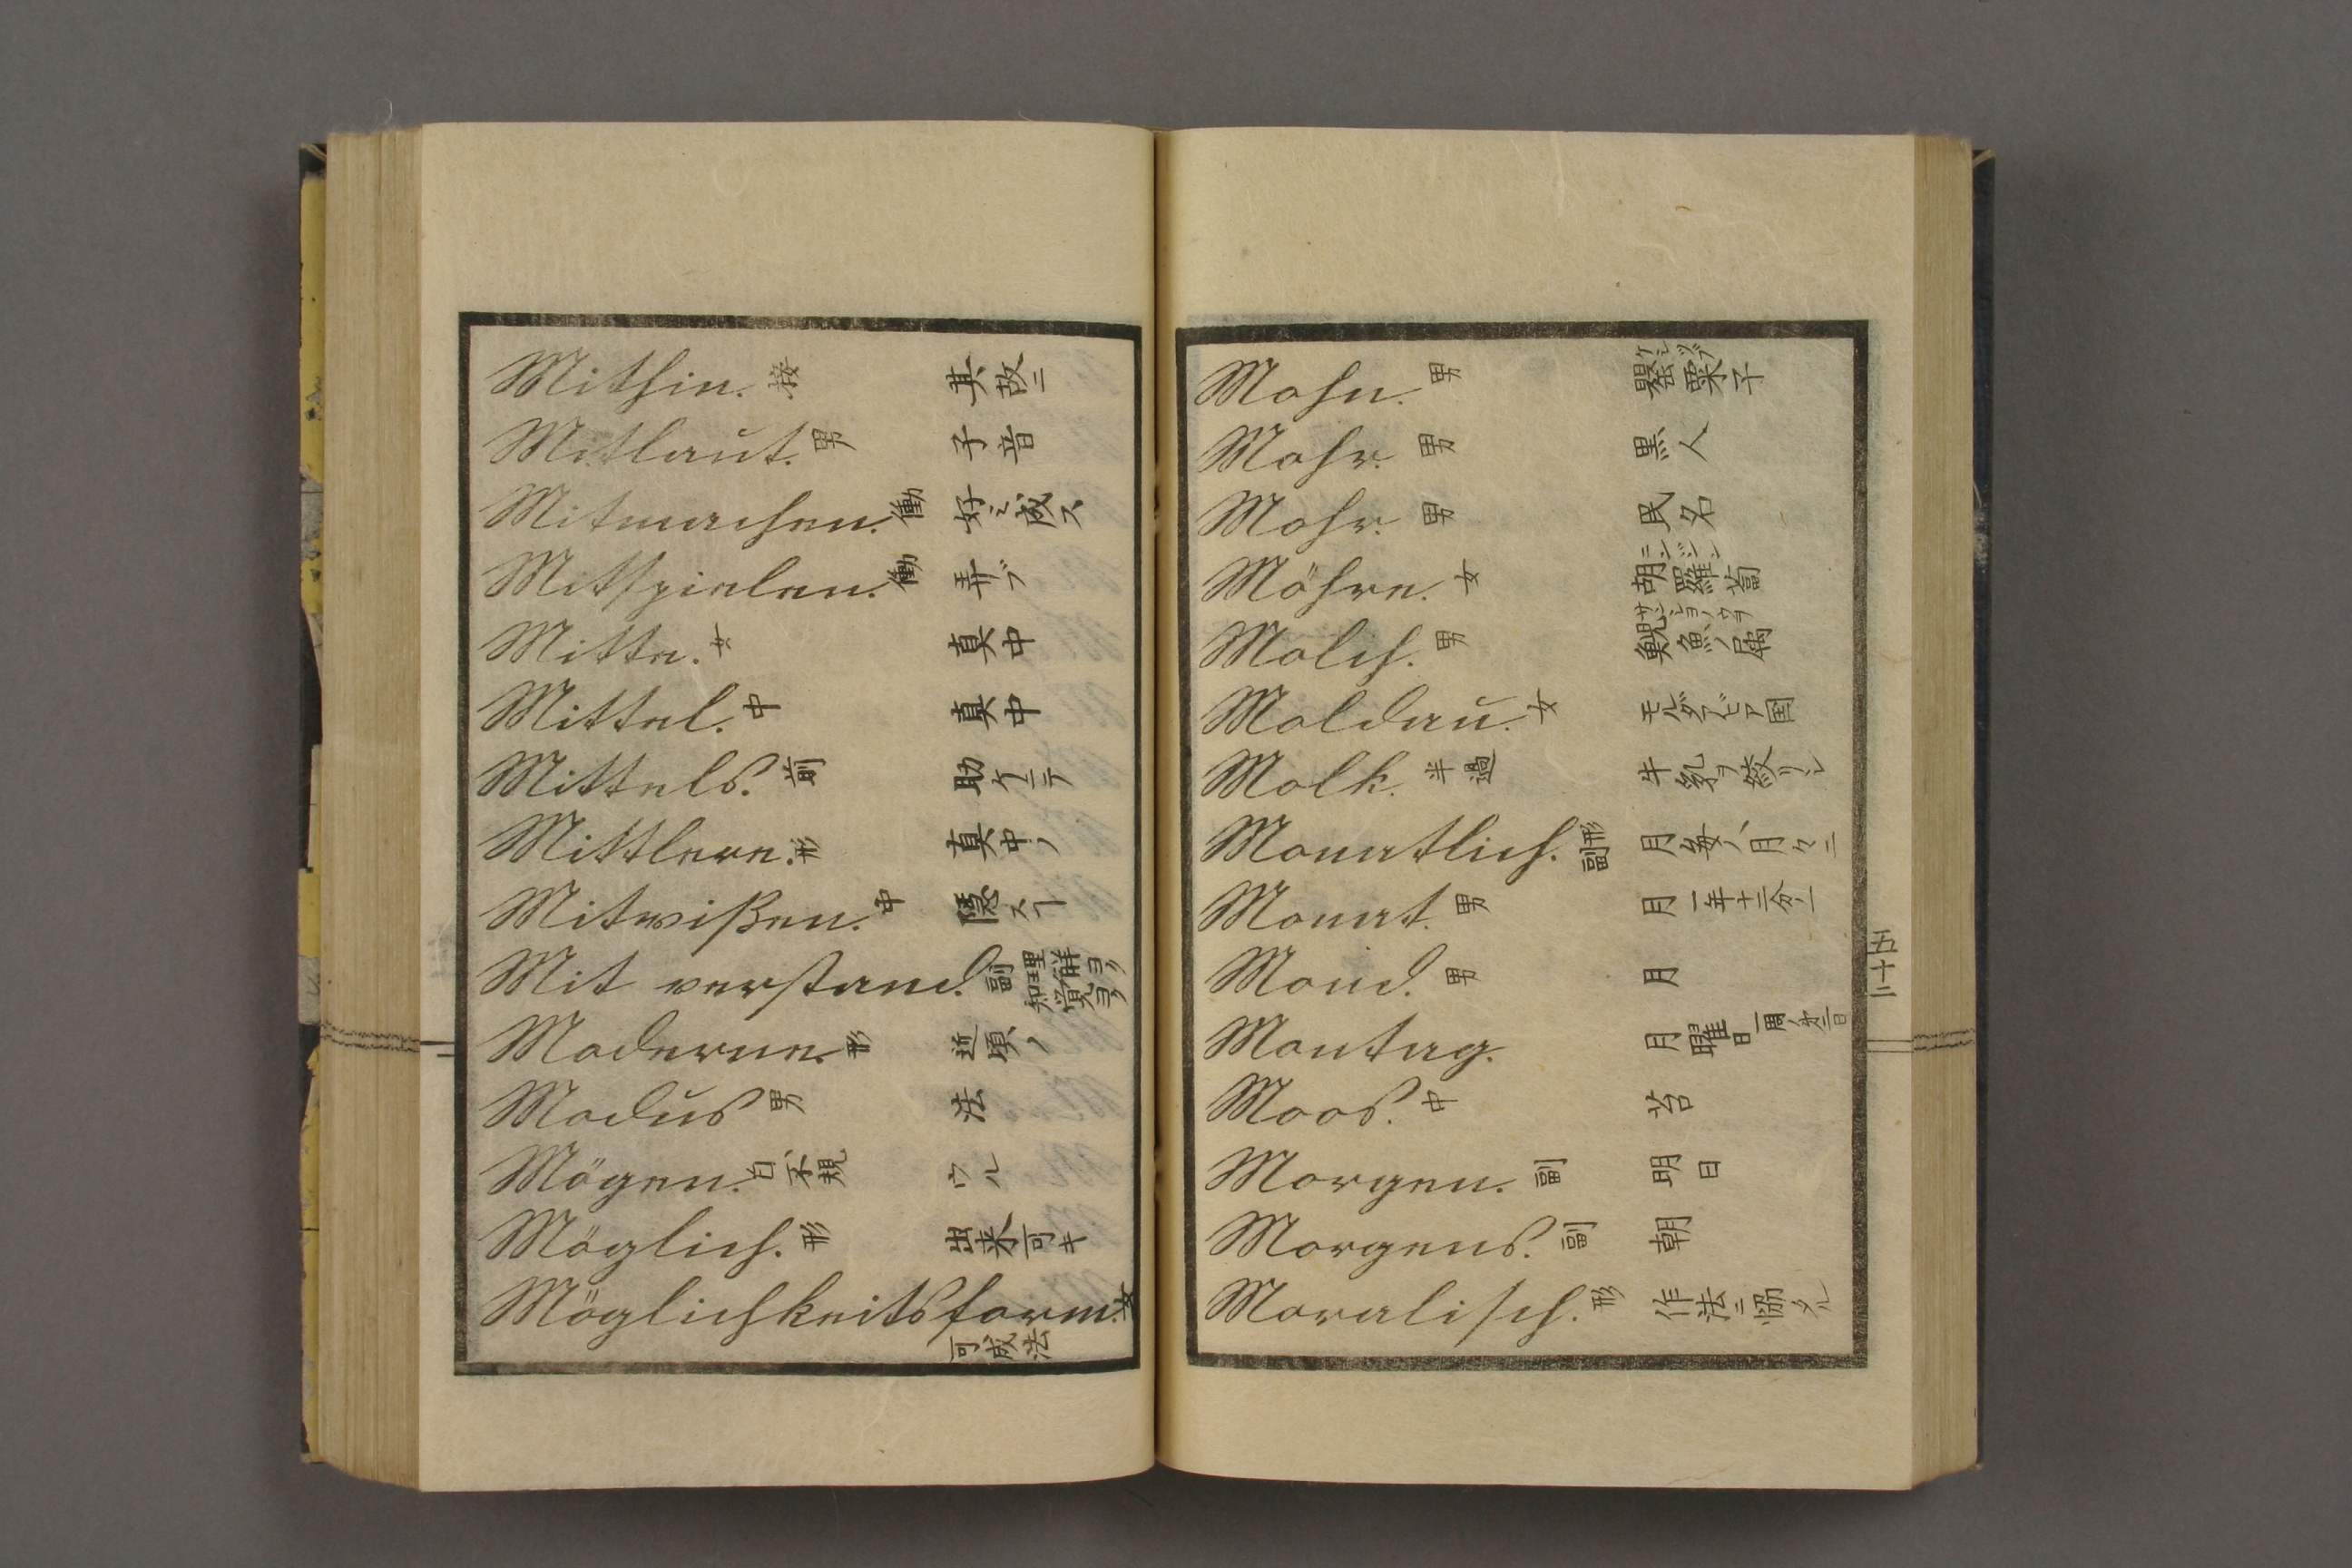 Mithin. 接 其故ニ
Mitlaut. 男 子音
Mitmachen. 働 好ミ成ス
Mitspielen. 働 弄ブ
Mitte. 女 真中
Mittel. 中 真中
Mittels. 前 助ケニテ
Mittlere. 形 真中ノ
Mitwißen. 中 隠スヿ
Mit verstand. 副 理解ヨク 知覚ヨク
Moderne. 形 近頃ノ
Modus 男 法
Mögen. 白、不規 ウル
Möglich. 形 出来可キ
Möglichkeitsform. 女
可成法
Mohn. 男 罌粟子
Mohr. 男 黒人
Mohr. 男 民名
Möhre. 女 胡羅蔔 ニンジン
Molch. 男 鯢魚ノ属
Moldau. 女 モルダビア国
Molk. 半過 牛乳ヲ絞リシ
Monatlich. 形副 月毎ノ、月々ニ
Monat. 男 月 一年十二分ノ一
Mond. 男 月
Montag. 月曜日
Moos. 中 苔
Morgen. 副 明日
Morgens. 副 朝
Moralisch. 形 作法ニ協タル
五十二